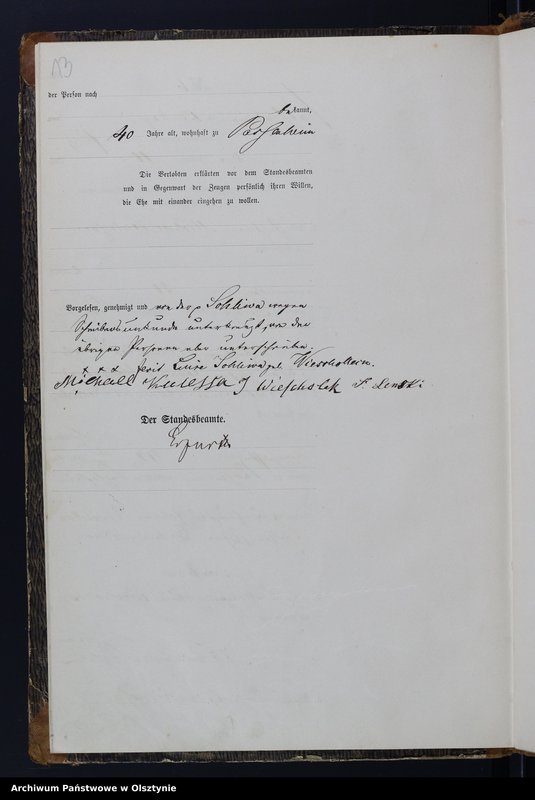 13
der Person nach
be kannt,
40 Jahre alt, wohnhaft zu
Die Verlobten erklärten vor dem Standesbeamten
und in Gegenwart der Zeugen persönlich ihren Willen,
die Ehe mit einander eingehen zu wollen.
Vorgelesen, genehmigt und von der p Schliwa wegen
Schreibensunkunde unterkreuzt, von den
übrigen Personen aber unterschrieben.
+ + + Schliwa geb.
Michael Kulessa J Wieschollek
Der Standesbeamte.
Archiwum Państwowe w Olsztynie